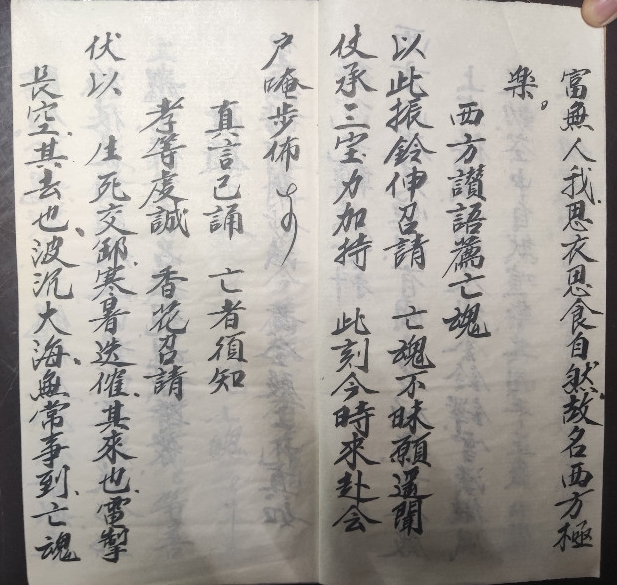 富無人我思衣思食自然故名西方極
樂。
西方讃語薦亡魂
以此振鈴伸召請 亡魂不昧願遥聞
仗承三宝力加持 此刻今時來赴会
户唵步佈
真言已誦 亡者須知
孝等虔誠 香花召請
伏以 生死交卸寒暑迭催、其來也、雷掣
長空、其去也、波沉大海、無常事到、亡魂